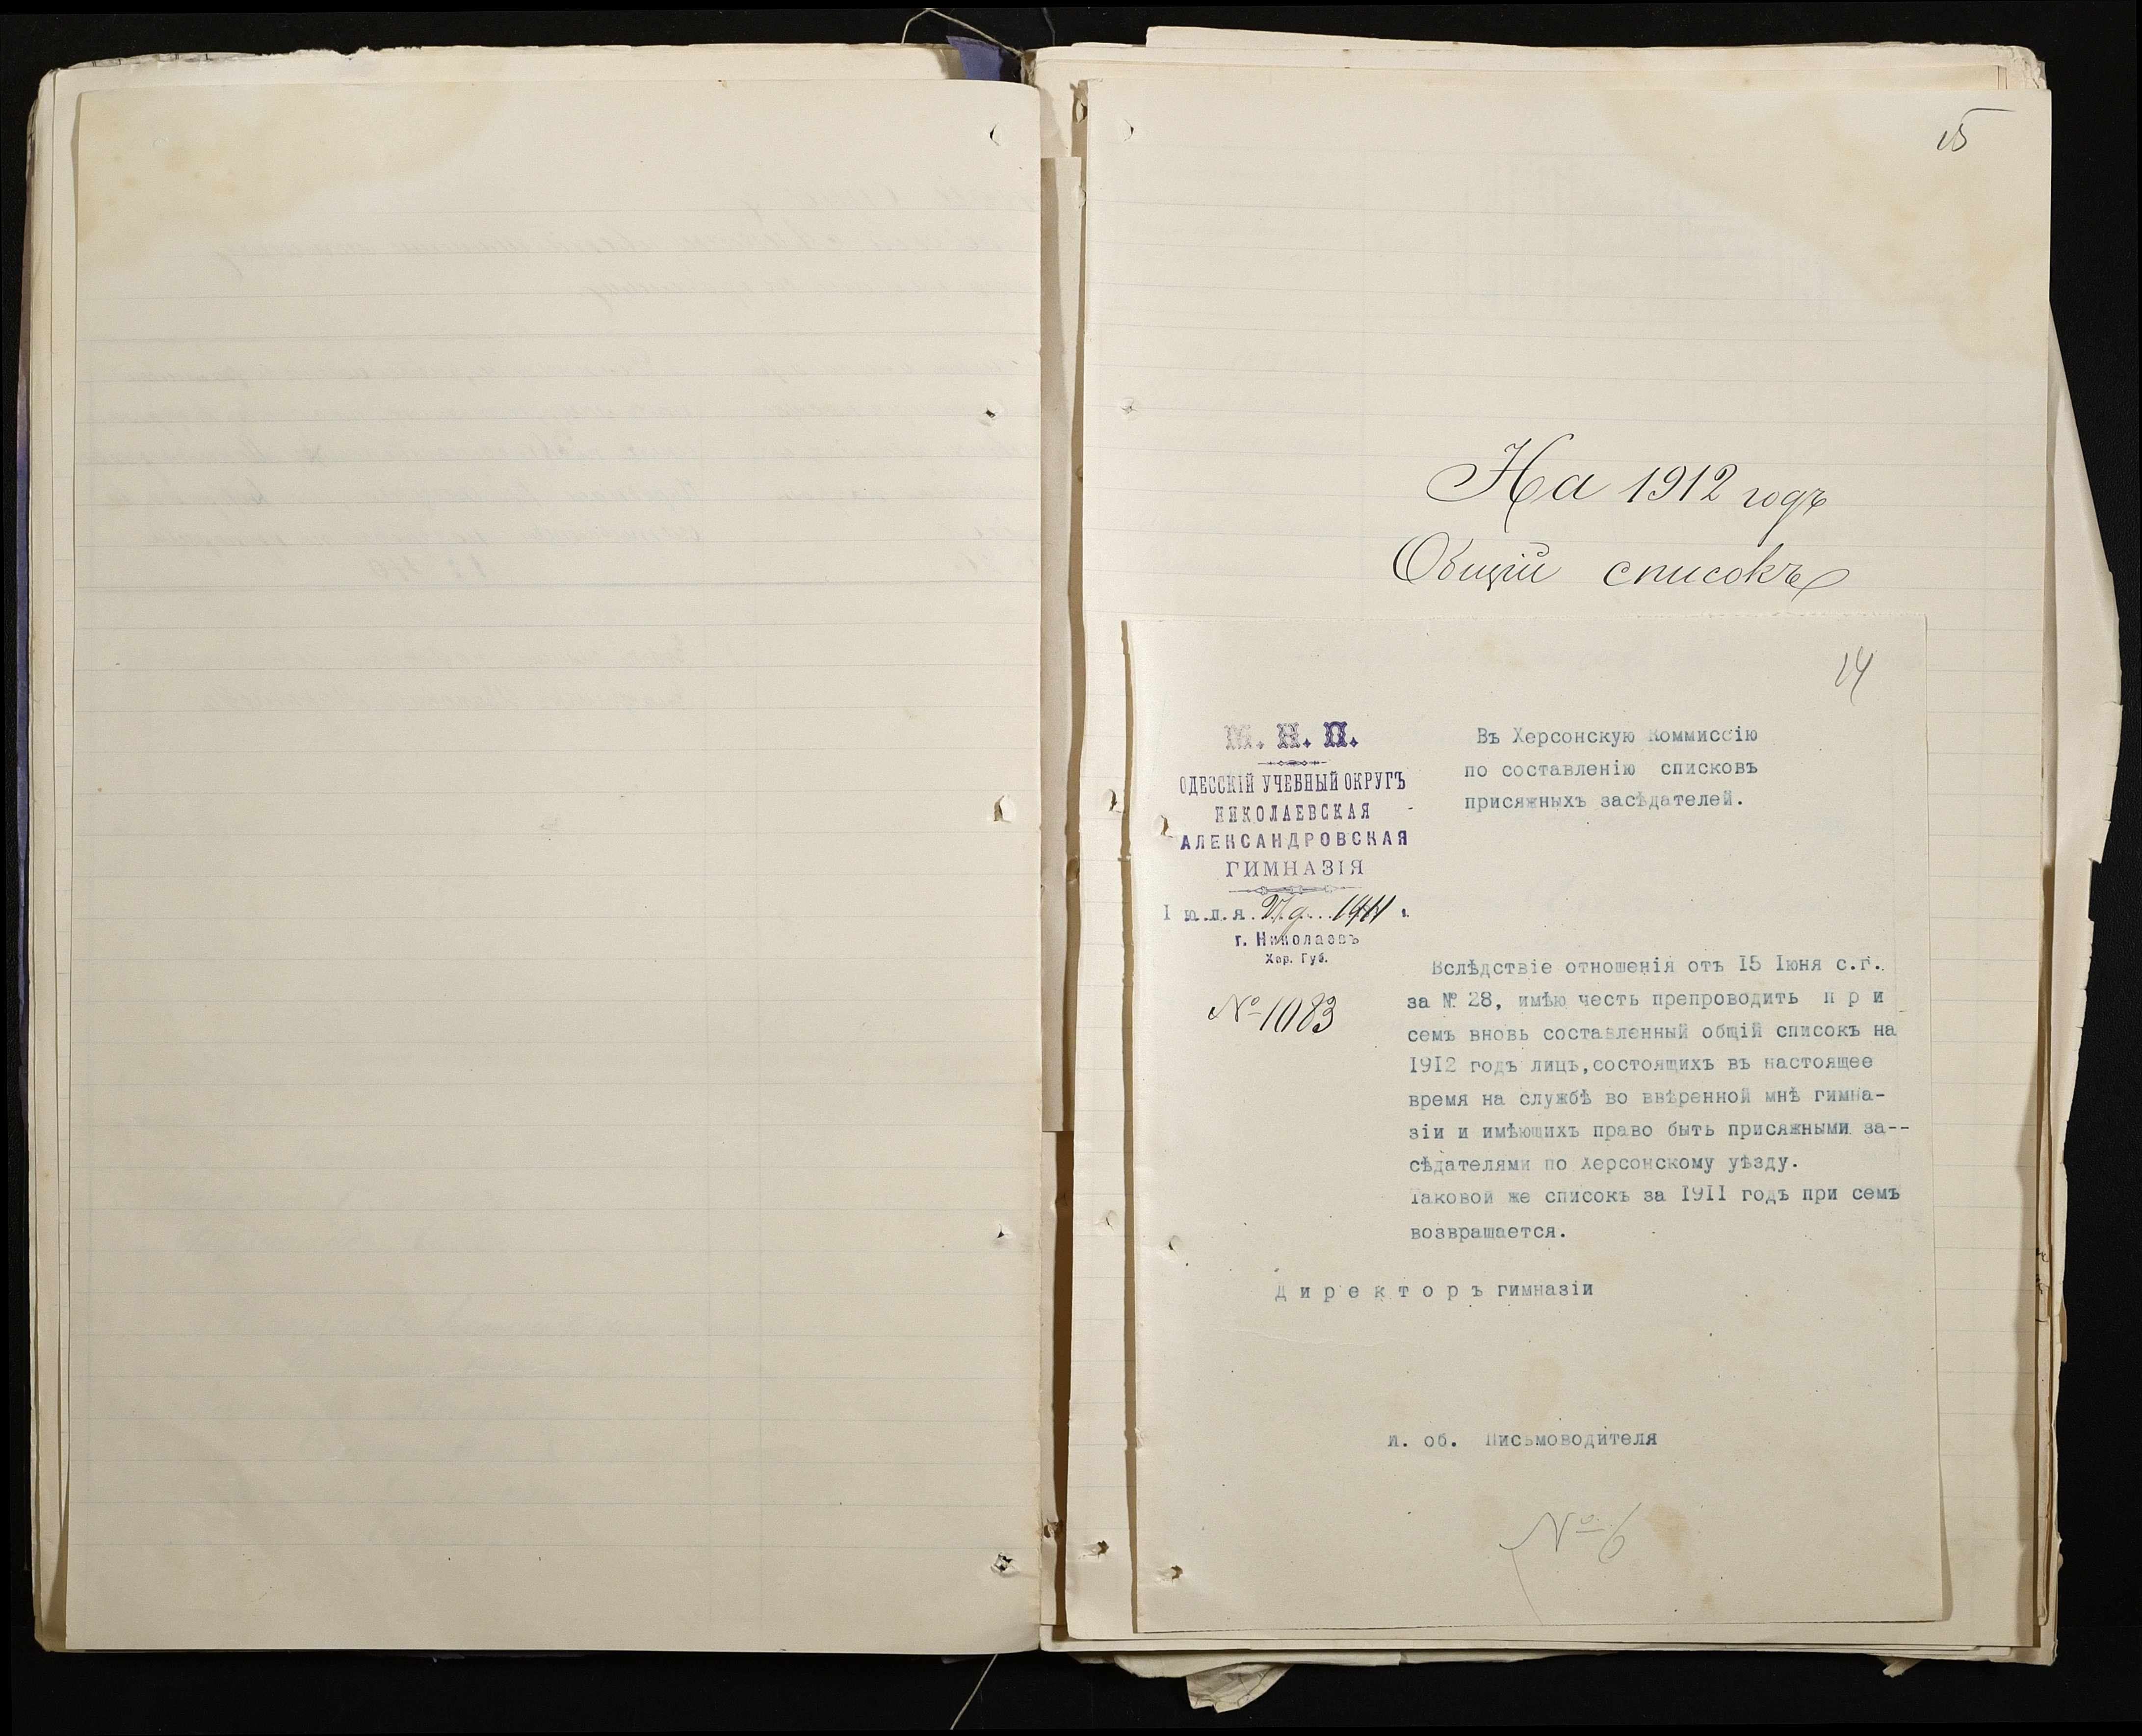 15
На 1912 годъ
Общій списокъ
14
М. Н. П.
ОДЕССКІЙ УЧЕБНЫЙ ОКРУГЪ
НИКОЛАЕВСКАЯ
АЛЕКСАНДРОВСКАЯ
ГИМНАЗІЯ
Іюля 27 д. 1911 г.
г. Николаевъ
Хер. Губ.
№ 1083
Въ Херсонскую Коммиссію
по составленію списковъ
присяжныхъ засѣдателей.
Вслѣдствіе отношенія отъ 15 Іюня с.г.
за № 28, имѣю честь препроводить п р и
семъ вновь составленный общій списокъ на
1912 годъ лицъ,состоящихъ въ настоящее
время на службѣ во ввѣренной мнѣ гимна-
зіи и имѣющихъ право быть присяжными за--
сѣдателями по Херсонскому уѣзду.
Таковой же списокъ за 1911 годъ при семъ
возвращается.
Д и р е к т о р ъ гимназіи
И. об. Письмоводителя
№ 6